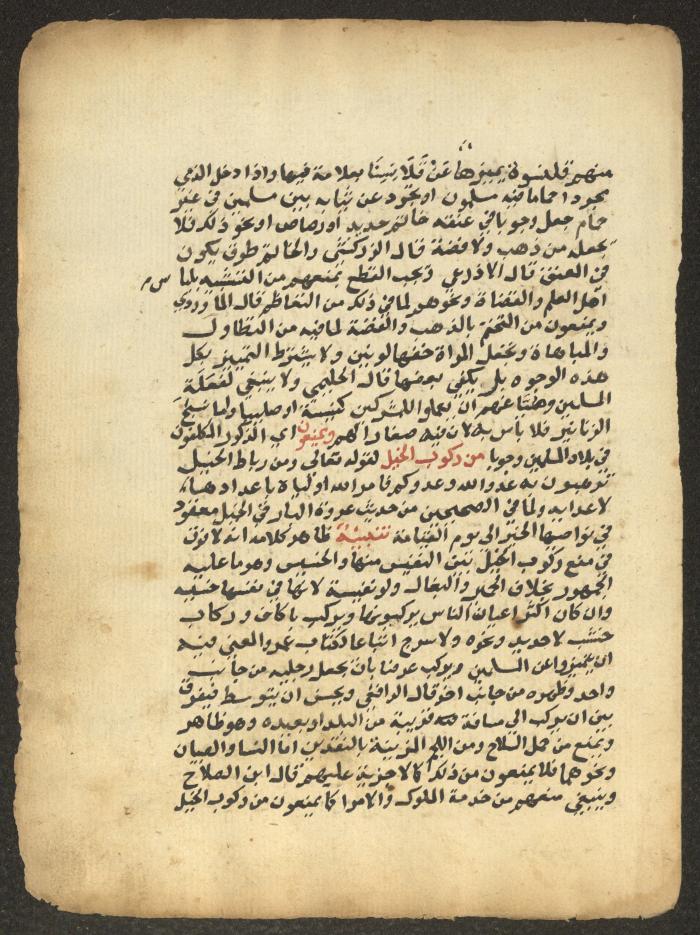 منهم قلنسوة يميزها عن قلانسنا بعلامة فيها واذا دخل الذمي
مجردا حماما فيه مسلمون او تجرد عن ثيابه بين مسلمين في غير
حمام جعل وجوبا في عنقه خاتم حديد او رصاص او نحو ذلك فلا
يجعله من ذهب ولا فضة قال الزركشي والخاتم طوق يكون
في العنق قال الاذرعي ويجب القطع بمنعهم من التشبه بلباس
اهل العلم والقضاة ونحوهم لما في ذلك من التعاظم قال الماوردي
ويمنعون من التختم بالذهب والفضة لما فيه من التطاول
والمباهاة وتجعل المراة خفها لونين ولا يشترط التمييز بكل
هذه الوجوه بل يكفي بعضها قال الحليمي ولا ينبغي لفعلة
المسلمين وصناعهم ان يعملوا للمشركين كنيسة او صليبا واما نسج
الزنانير فلا باس به لان فيه صغارا لهم ويمنعون اي الذكور المكلفون
في بلاد المسلمين وجوبا من ركوب الخيل لقوله تعالى ومن رباط الخيل
ترهبون به عدو الله وعدوكم فامر الله اولياه باعدادها
لاعدايه ولما في الصحيحين من حديث عروة البارقي الخيل معقود
في نواصيها الخير الى يوم القيامة تنبيه ظاهر كلامه انه لا فرق
في منع ركوب الخيل بين النفيس منها والخسيس وهو ما عليه
الجمهور بخلاف الحمير والبغال ولو نفيسة لانها في نفسها خسيسه
وان كان اكثر اعيان الناس يركبونها ويركب باكاف وركاب
خشب لا حديد ونحوه ولا سرج اتباعا لكتاب عمر والمعنى فيه
ان يتميزوا عن المسلمين ويركب عرضا بان يجعل رجليه من جانب
واحد وظهره من جانب اخر قال الرافعي ويحسن ان يتوسط فيفرق
بين ان يركب الى مسافة قريبة من البلد او بعيده وهو ظاهر
ويمنع من حمل السلاح ومن اللجم المزينة بالنقدين اما النسا والصبيان
ونحوهما فلا يمنعون من ذلك كما لا جزية عليهم قال ابن الصلاح
وينبغي منعهم من خدمة الملوك والامرا كما يمنعون من ركوب الخيل